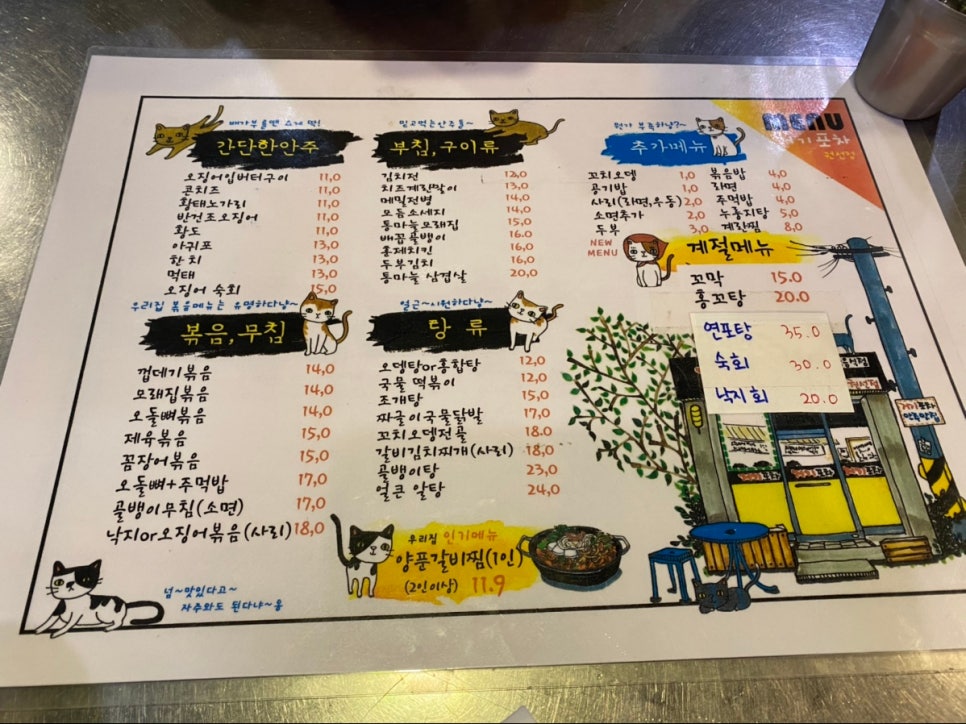 MENU
포차
권선점
간단한안주
오징어입버터구이 11,0
콘치즈 11,0
황태노가리 11,0
반건조오징어 11,0
황도 11,0
아귀포 13,0
한치 13,0
먹태 13,0
오징어 숙회 15,0
믿고먹는안주들~
부침,구이류
김치전 12,0
치즈계란말이 13,0
메밀전병 14,0
모듬소세지 14,0
통마늘모래집 15,0
배꼽골뱅이 16.0
훈제치킨 16,0
두부김치 16,0
통마늘 삼겹살 20,0
뭔가 부족하냥?~
추가메뉴
꼬치오뎅 1,0
공기밥 1,0
사리(라면,우동) 2,0
소면추가 2,0
두부 3,0
볶음밥 4,0
라면 4,0
주먹밥 4,0
누룽지탕 5,0
계란찜 8,0
NEW
MENU
계절메뉴
꼬막 15.0
홍꼬탕 20.0
연포탕 35.0
숙회 30.0
낙지회 20.0
우리집 볶음메뉴는 유명하다냥~
볶음,무침
껍데기볶음 14,0
모래집볶음 14,0
오돌뼈볶음 14,0
제육볶음 15,0
꼼장어볶음 15,0
오돌뼈+주먹밥 17,0
골뱅이무침(소면) 17,0
낙지or오징어볶음(사리) 18,0
얼큰~시원하다냥~
탕 류
오뎅탕or홍합탕 12,0
국물 떡볶이 12,0
조개탕 15,0
짜글이국물닭발 17,0
꼬치오뎅전골 18.0
갈비김치찌개(사리) 18,0
골뱅이탕 23,0
얼큰 알탕 24,0
우리집 인기메뉴
양푼갈비찜(1인)
(2인이상) 11.9
넘~맛있다고~
자주와도 된다냐~옹